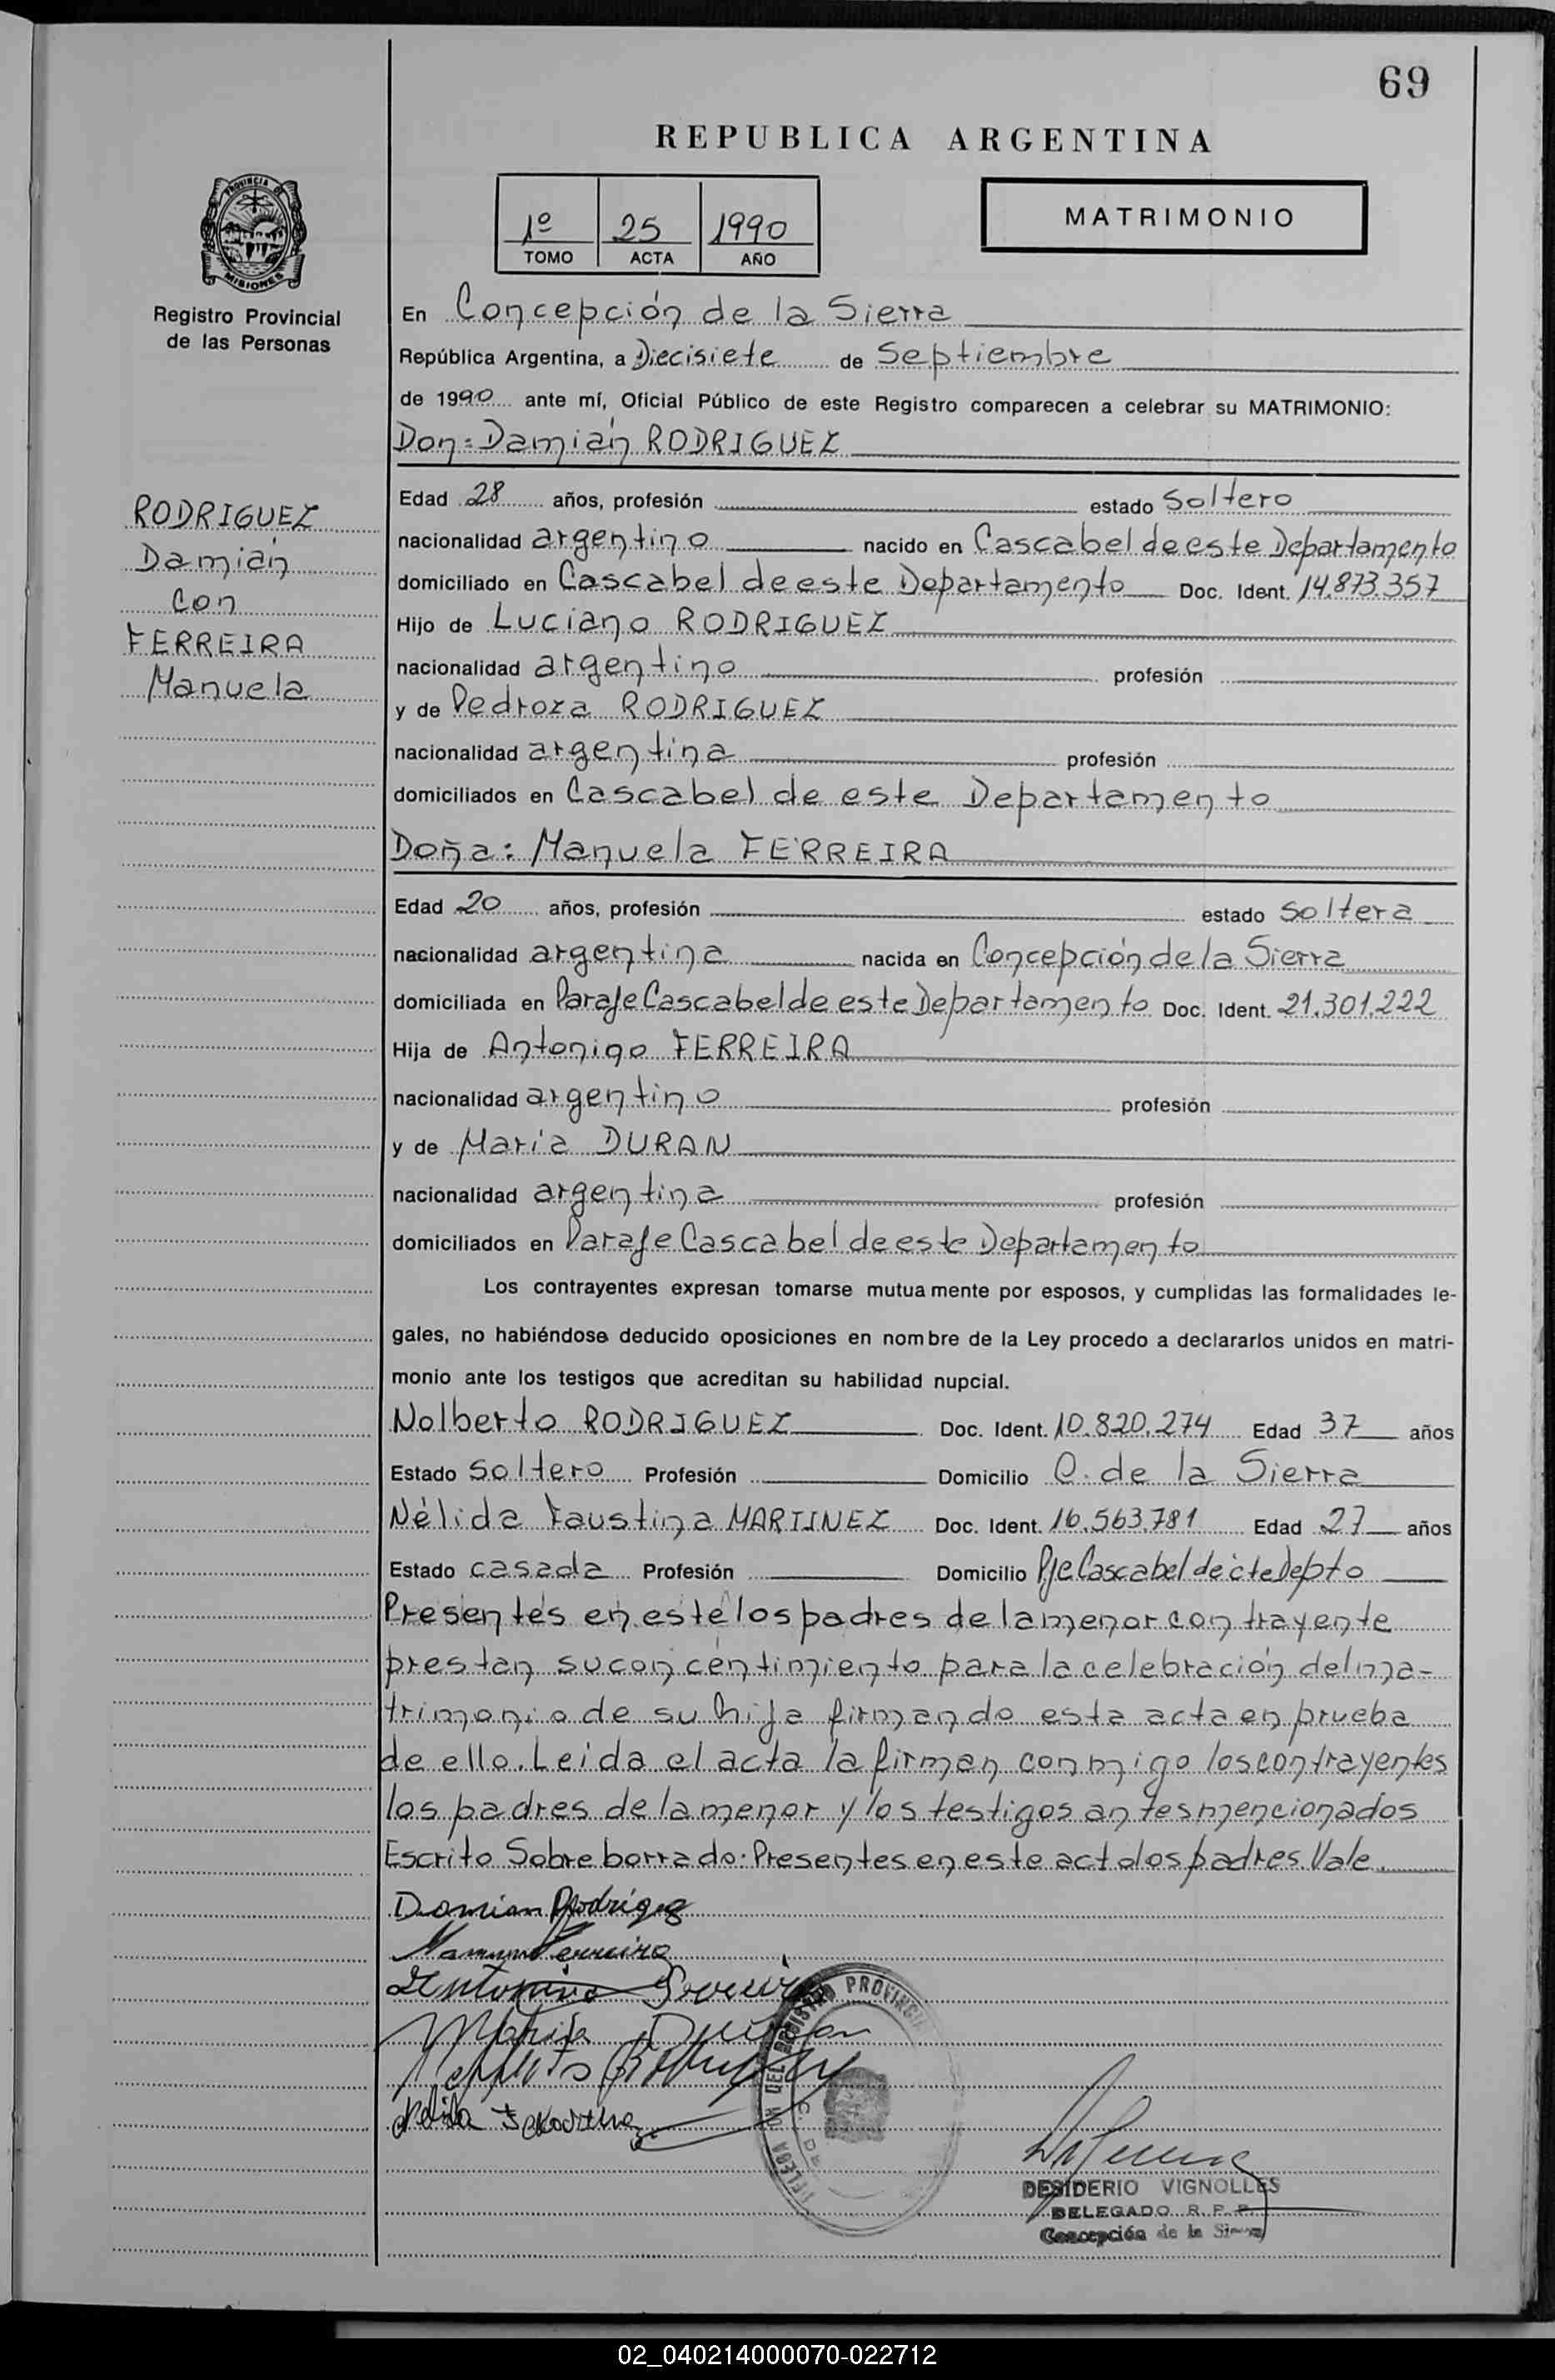 69
REPUBLICA ARGENTINA
1º 25 1990
TOMO ACTA AÑO
MATRIMONIO
PROVINCIA DE
MISIONES
Registro Provincial
de las Personas
En Concepción de la Sierra
República Argentina, a Diecisiete de Septiembre
de 1990 ante mí, Oficial Público de este Registro comparecen a celebrar su MATRIMONIO:
Don: Damián RODRIGUEZ
RODRIGUEZ
Damián
con
FERREIRA
Manuela
Edad 28 años, profesión estado soltero
nacionalidad argentino nacido en Cascabel de este Departamento
domiciliado en Cascabel de este Departamento Doc. Ident. 14.873.357
Hijo de Luciano RODRIGUEZ
nacionalidad argentino profesión
y de Pedroza RODRIGUEZ
nacionalidad argentina profesión
domiciliados en Cascabel de este Departamento
Doña: Manuela FERREIRA
Edad 20 años, profesión estado soltera
nacionalidad argentina nacida en Concepción de la Sierra
domiciliada en Paraje Cascabel de este Departamento Doc. Ident. 21.301.222
Hija de Antonino FERREIRA
nacionalidad argentino profesión
y de María DURAN
nacionalidad argentina profesión
domiciliados en Paraje Cascabel de este Departamento
Los contrayentes expresan tomarse mutuamente por esposos, y cumplidas las formalidades le-
gales, no habiéndose deducido oposiciones en nombre de la Ley procedo a declararlos unidos en matri-
monio ante los testigos que acreditan su habilidad nupcial.
Nolberto RODRIGUEZ Doc. Ident. 10.820.274 Edad 37 años
Estado soltero Profesión Domicilio C. de la Sierra
Nélida Faustina MARTINEZ Doc. Ident. 16.563.781 Edad 27 años
Estado casada Profesión Domicilio Pje Cascabel de éte Depto
Presentes en este los padres de la menor contrayente
prestan su concentimiento para la celebración del ma-
trimonio de su hija firmando esta acta en prueba
de ello. Leida el acta la firman conmigo los contrayentes
los padres de la menor y los testigos antes mencionados
Escrito Sobre borrado: Presentes en este acto los padres. Vale.
Damian Rodriguez
Manuela Ferreira
Antonino Ferreira
Maria Duran
DEL REGISTRO PROVINCIAL
DESIDERIO VIGNOLLES
DELEGADO R. P. P.
Concepción de la Sierra
02_040214000070-022712